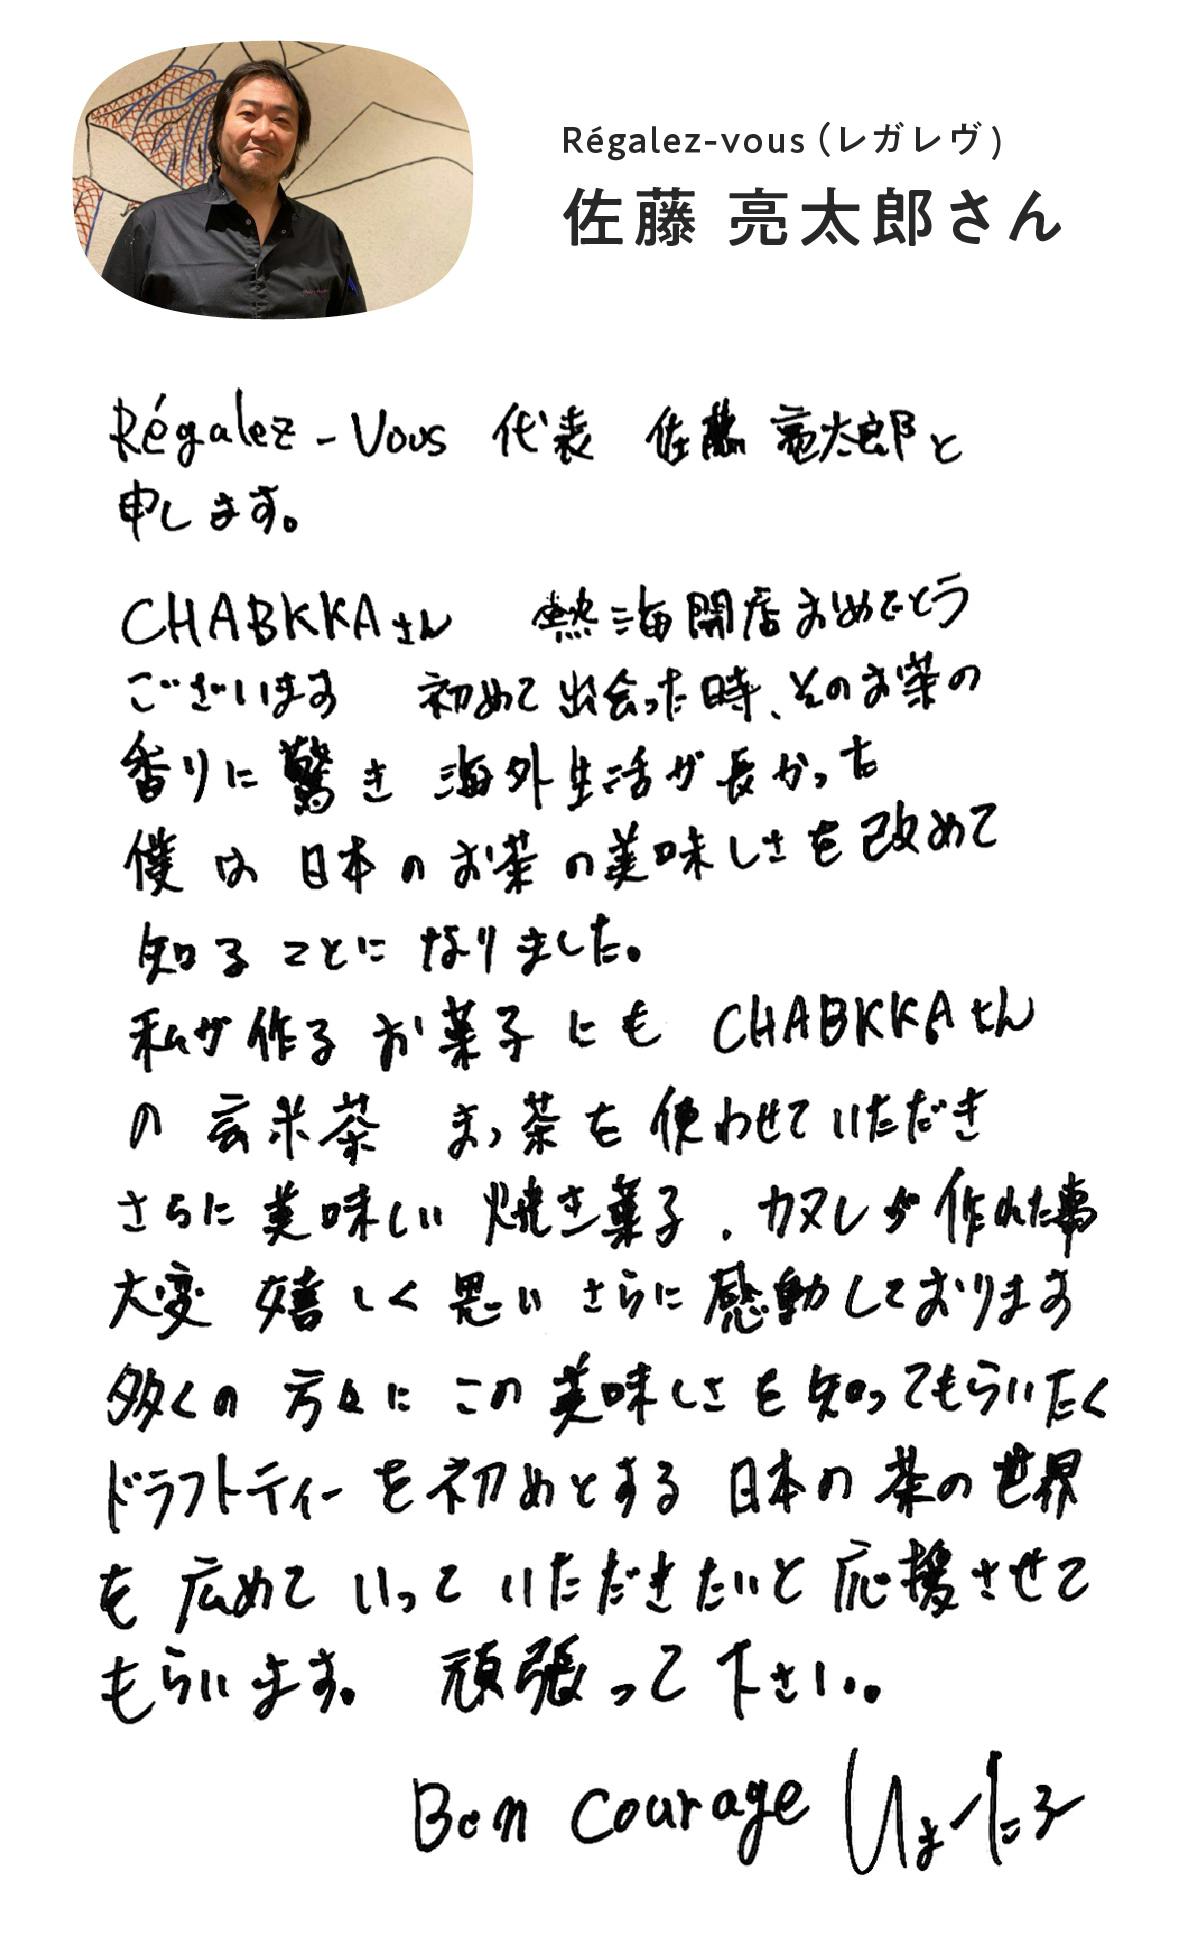 Régalez-vous(レガレヴ)
佐藤 亮太郎さん
Régalez-Vous 代表 佐藤 亮太郎と
申します。
CHABKKAさん 熱海開店おめでとう
ございます 初めて出会った時、そのお茶の
香りに驚き 海外生活が長かった
僕は日本のお茶の美味しさを改めて
知ることになりました。
私が作るお菓子にも CHABKKAさん
の玄米茶 まっ茶を使わせていただき
さらに美味しい焼き菓子、カヌレが作れた事
大変嬉しく思い さらに感動しております
多くの方々にこの美味しさを知ってもらいたく
ドラフトティーを初めとする日本の茶の世界
を広めていっていただきたいと応援させて
もらいます。 頑張って下さい。
Bon Courage